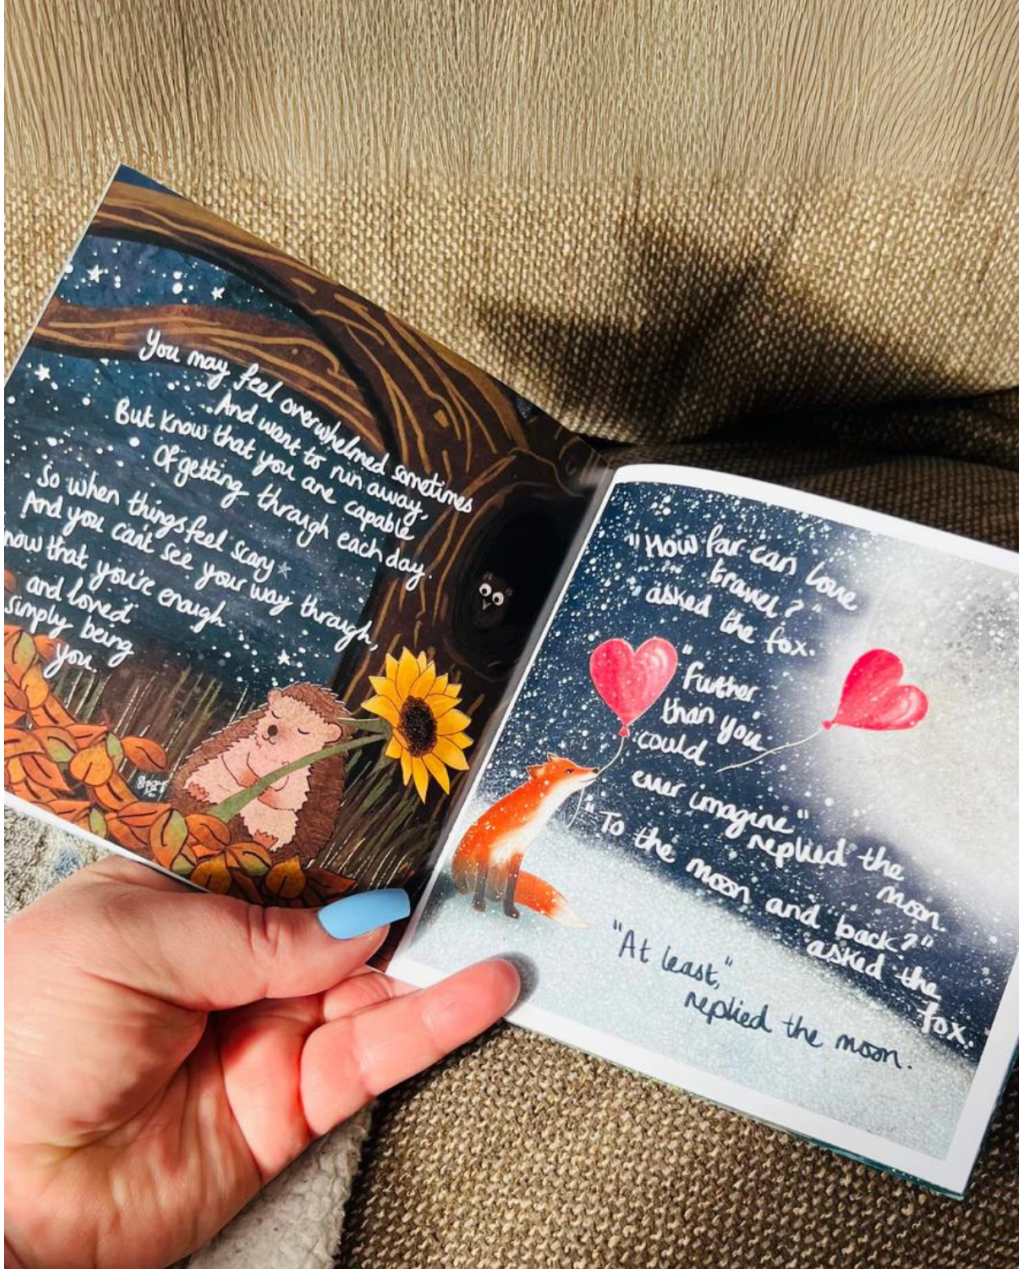 You may feel overwhelmed sometimes
And want to run away,
But know that you are capable
Of getting through each day.
So when things feel scary
And you can't see your way through,
now that you're enough
and loved
simply being
you.
"How far can love
travel?"
asked the fox.
"Further
than you
could
ever imagine"
replied the
moon.
"To the moon and back?"
asked the
fox.
"At least,"
replied the moon.